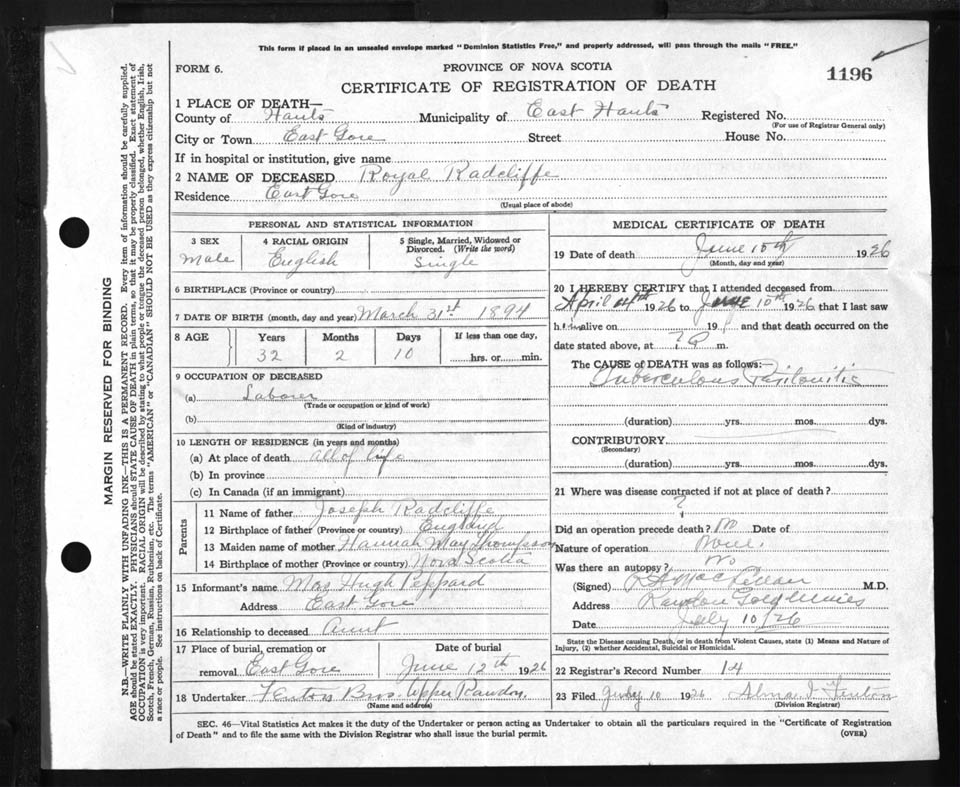 This form if placed in an unsealed envelope marked "Dominion Statistics Free," and properly addressed, will pass through the mails "FREE."
FORM 6.
PROVINCE OF NOVA SCOTIA
1196
CERTIFICATE OF REGISTRATION OF DEATH
1 PLACE OF DEATH—
County of Hants Municipality of East Hants Registered No.
(For use of Registrar General only)
City or Town East Gore Street House No.
If in hospital or institution, give name
2 NAME OF DECEASED Royal Radcliffe
Residence East Gore
(Usual place of abode)
PERSONAL AND STATISTICAL INFORMATION
3 SEX 4 RACIAL ORIGIN 5 Single, Married, Widowed or Divorced. (Write the word)
Male English Single
6 BIRTHPLACE (Province or country)
7 DATE OF BIRTH (month, day and year) March 31st 1894
8 AGE Years Months Days If less than one day,
32 2 10 hrs. or min.
9 OCCUPATION OF DECEASED
(a) Laborer
(Trade or occupation or kind of work)
(b)
(Kind of industry)
10 LENGTH OF RESIDENCE (in years and months)
(a) At place of death all of life
(b) In province
(c) In Canada (if an immigrant)
Parents
11 Name of father Joseph Radcliffe
12 Birthplace of father (Province or country) England
13 Maiden name of mother Hannah May Thompson
14 Birthplace of mother (Province or country) Nova Scotia
15 Informant's name Mrs Hugh Peppard
Address East Gore
16 Relationship to deceased Aunt
17 Place of burial, cremation or removal East Gore Date of burial June 12th 1926
18 Undertaker Fenton Bros. Upper Rawdon
(Name and address)
MEDICAL CERTIFICATE OF DEATH
19 Date of death June 10th 1926
(Month, day and year)
20 I HEREBY CERTIFY that I attended deceased from
April 1926 to June 10th 1926 that I last saw
him alive on 19 and that death occurred on
date stated above, at m.
The CAUSE OF DEATH was as follows:
Tuberculous Peritonitis
(duration) yrs. mos. dys.
CONTRIBUTORY
(Secondary)
(duration) yrs. mos. dys.
21 Where was disease contracted if not at place of death?
?
Did an operation precede death? No Date of
Nature of operation None.
Was there an autopsy? No
(Signed) MacLellan M.D.
Address Rawdon Gold Mines
Date July 10/26
State the Disease causing Death, or in death from Violent Causes, state (1) Means and Nature of Injury, (2) whether Accidental, Suicidal or Homicidal.
22 Registrar's Record Number 14
23 Filed July 10 1926 Alma I. Fenton
(Division Registrar)
SEC. 46—Vital Statistics Act makes it the duty of the Undertaker or person acting as Undertaker to obtain all the particulars required in the "Certificate of Registration
of Death" and to file the same with the Division Registrar who shall issue the burial permit.
(OVER)
MARGIN RESERVED FOR BINDING
N.B—WRITE PLAINLY WITH UNFADING INK—THIS IS A PERMANENT RECORD. Every item of information should be carefully supplied.
AGE should be stated EXACTLY. PHYSICIANS should STATE CAUSE OF DEATH in plain terms, so that it may be properly classified. Exact statement of
OCCUPATION is very important. RACIAL ORIGIN will be described by stating to what people or tongue the deceased person belonged, whether English, Irish,
Scotch, French, German, Russian, Ruthenian, etc. The terms "AMERICAN" or "CANADIAN" SHOULD NOT BE USED as they express citizenship but not
a race or people. See instructions on back of Certificate.